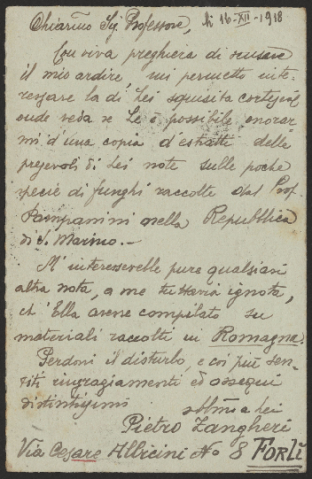 Chiar.mo Sig. Professore, li 16-XII-1918
Con viva preghiera di scusare
il mio ardire mi permetto inte-
ressare la di Lei squisita cortesia
onde veda se Le è possibile onorar
mi d'una copia d'estratto delle
pregevoli di Lei note sulle poche
specie di funghi raccolte dal Prof.
Pampanini nella Repubblica
di S. Marino.-
M'interesserebbe pure qualsiasi
altra nota, a me tuttavia ignota,
ch'Ella avesse compilato su
materiali raccolti in Romagna.
Perdoni il disturbo, e coi più sen-
titi ringraziamenti ed ossequi
distintissimi
Pietro Zangheri
Via Cesare Albicini No 8 Forlì